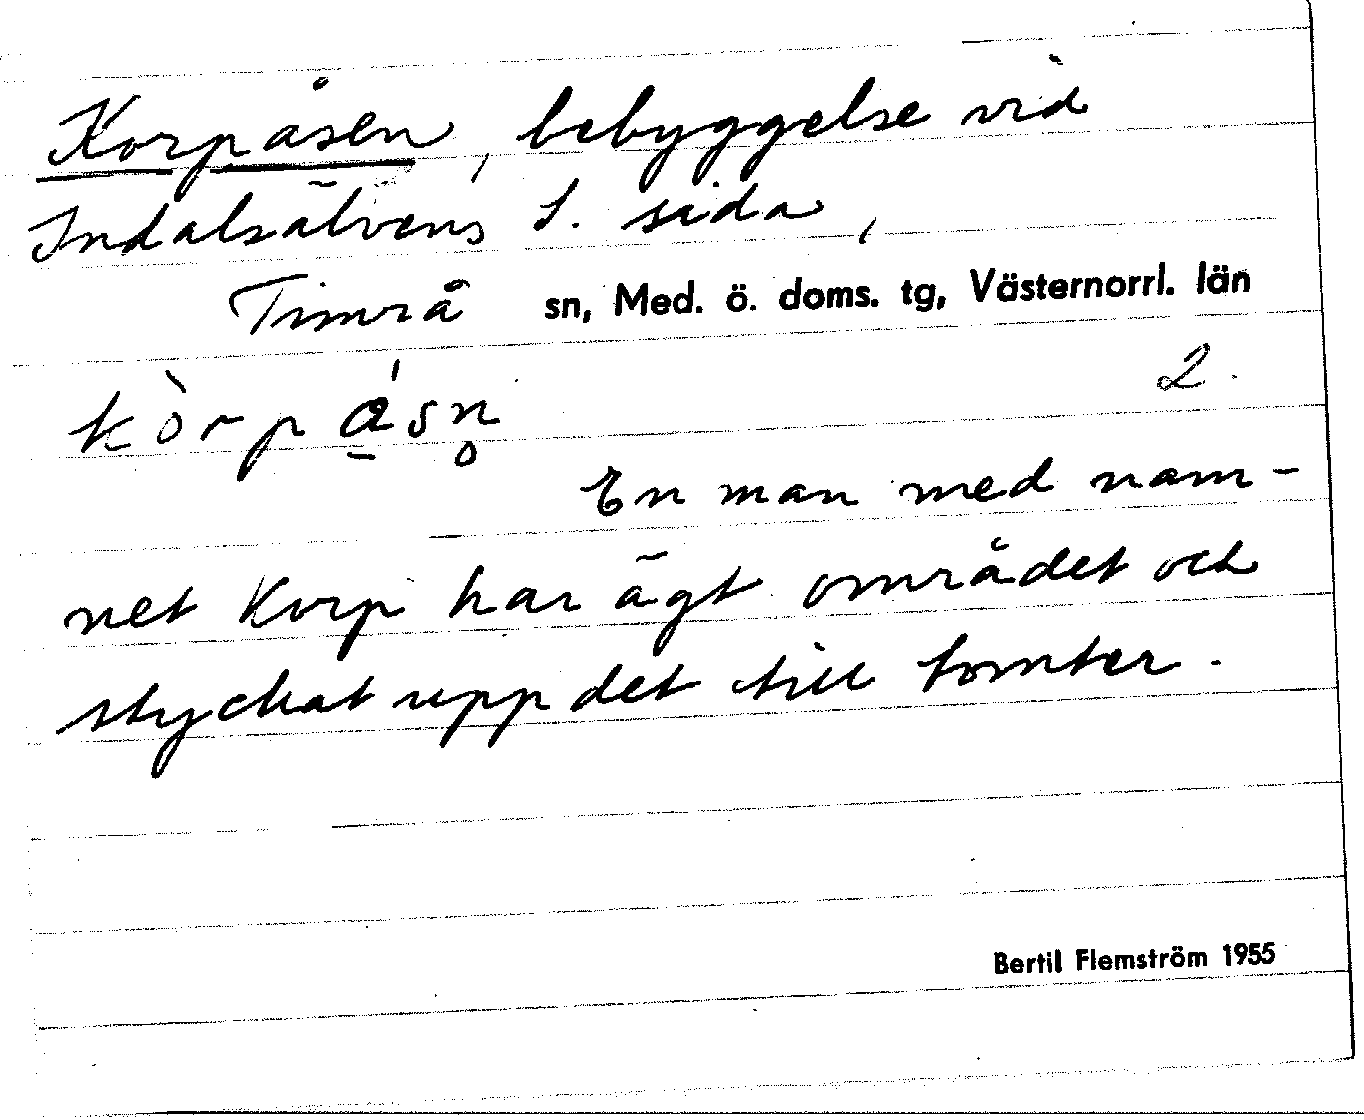 Korpåsen, bebyggelse vid
Indalsälvens S. sida,
Timrå sn, Med. ö. doms. tg, Västernorrl. län
2.
kòrpásn̥
En man med nam-
net Korp har ägt området och
styckat upp det till tomter.
Bertil Flemström 1955